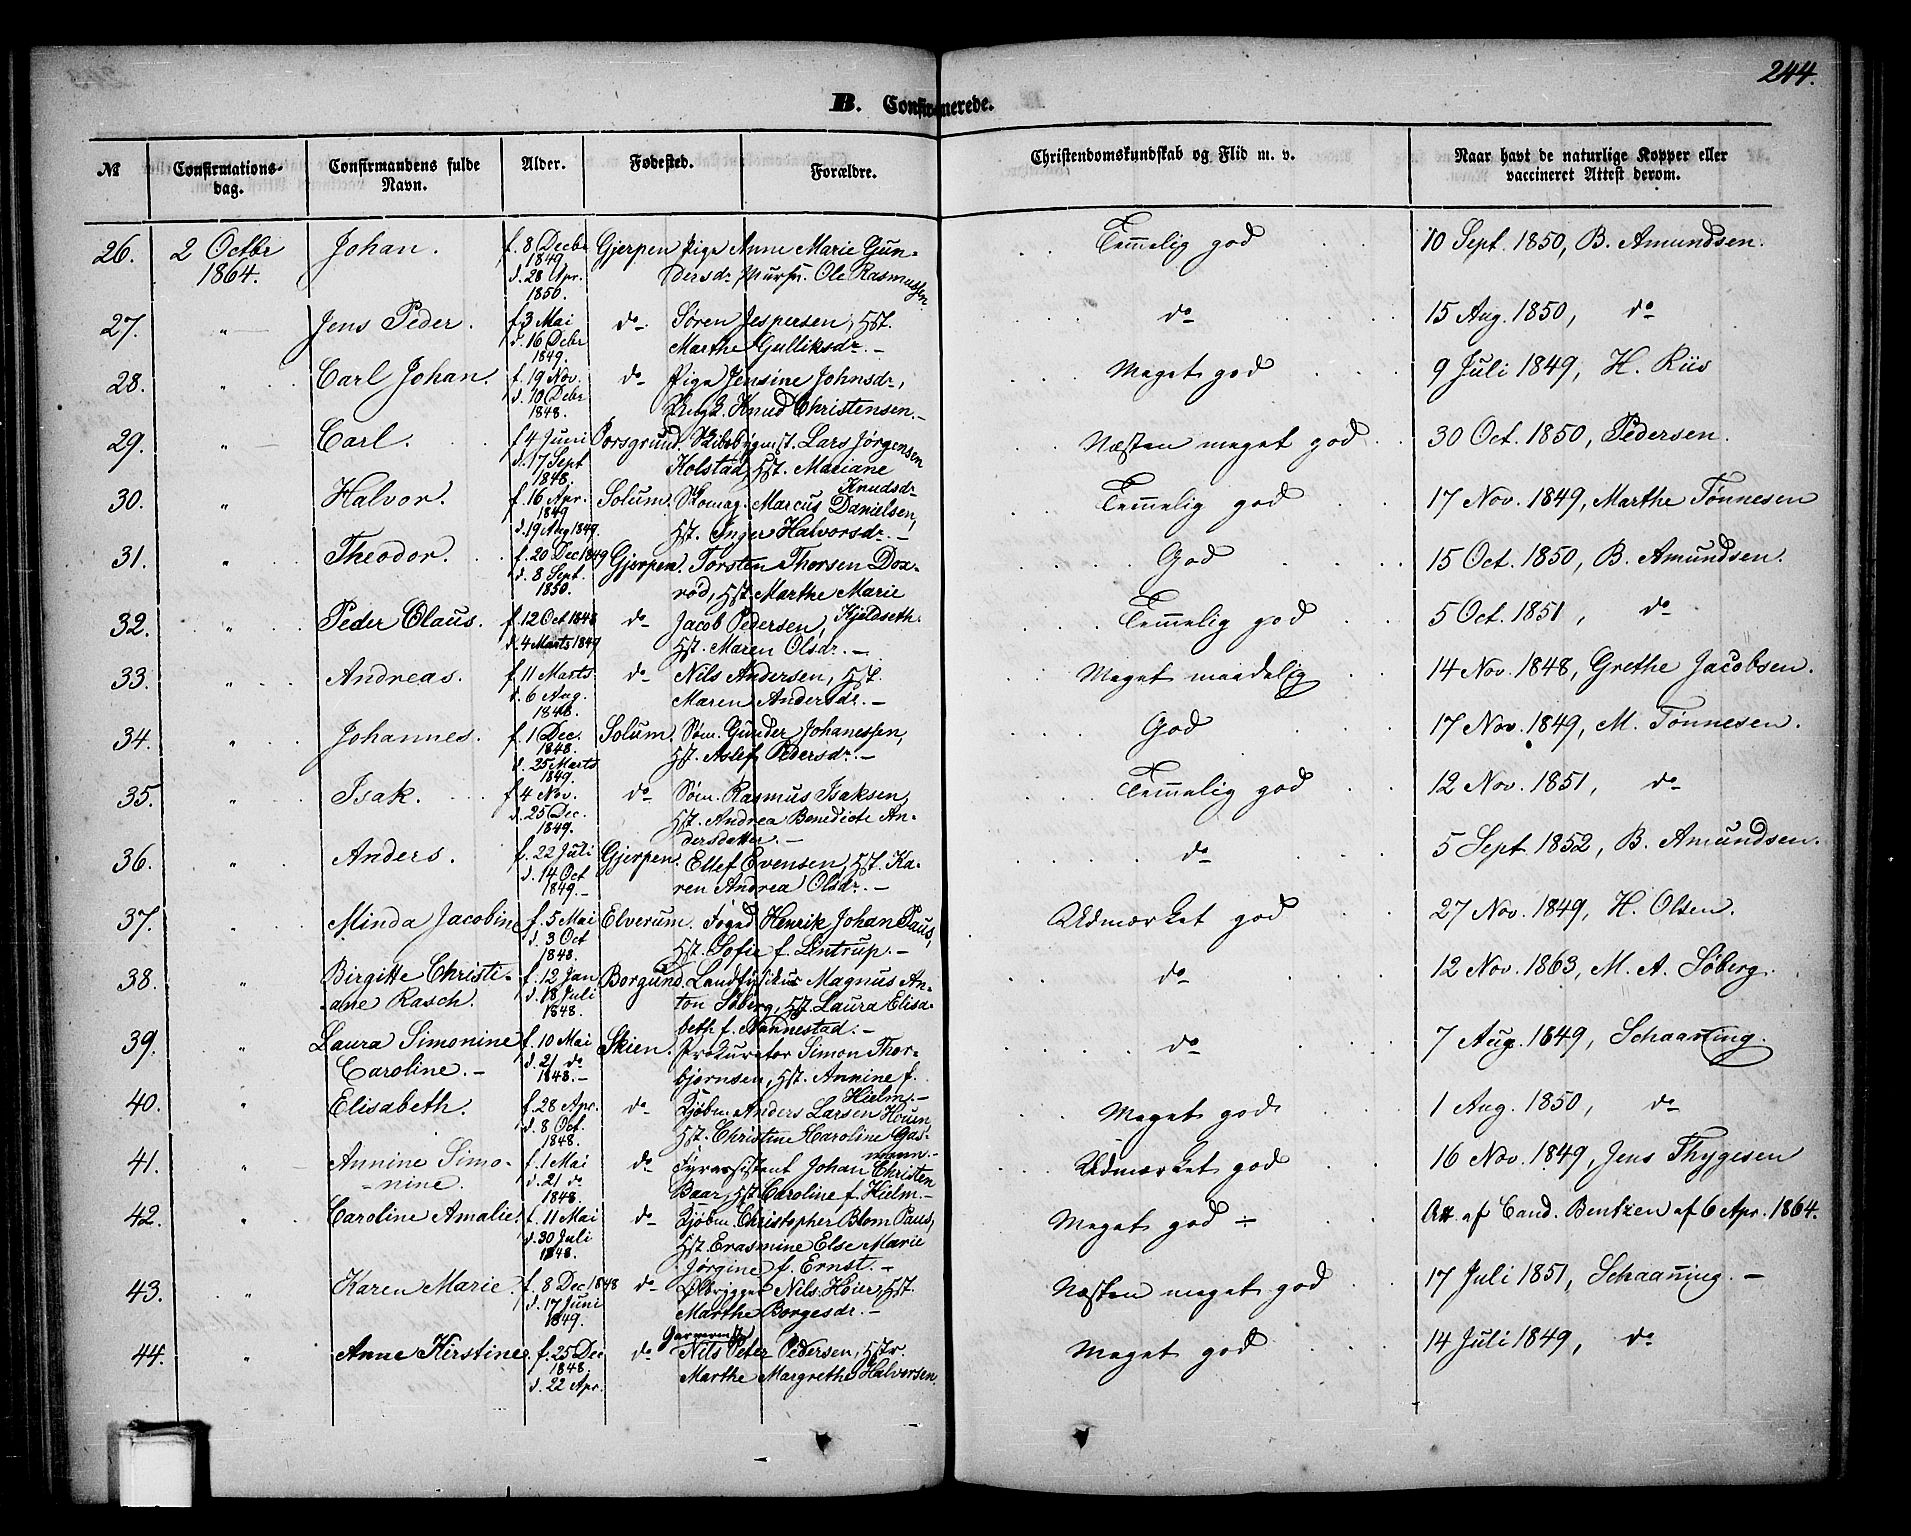 244.
B. Confirmerede.
№ Confirmations-dag. Confirmandens fulde Navn. Alder. Fødested. Forældre. Christendomskundskab og Flid m. v. Naar havt de naturlige Kopper eller vaccineret Attest derom.
26. 2 Octbr 1864. Johan. f. 8 Decbr 1849 d. 28 Apr. 1850. Gjerpen Pige Anne Marie Gundersdr, Murer Ole Rasmussen Temmelig god 10 Sept. 1850, B. Amundsen.
27. " Jens Peder. f. 3 Mai d. 16 Debr 1849. do Søren Jespersen, Hst. Marthe Gulliksdr.- do 15 Aug. 1850, do
28. " Carl Johan. f. 19 Nov. d. 10 Debr 1848. do Pige Jensine Johnsdr, Ungk. Knud Christensen.- Meget god 9 Juli 1849, H. Riis
29. " Carl. f. 4 Juni d. 17 Sept 1848. Porsgrund. Skibsbygmst. Lars Jørgensen Kolstad, Hst. Mariane Knudsdr- Næsten meget god 30 Oct. 1850, Pedersen.
30. " Halvor. f. 16 Apr. 1849 d. 19 Aug 1849. Solum. Skomag. Marcus Danielsen, Hst. Inger Halvorsdr.- Temmelig god 17 Nov. 1849, Marthe Tønnesen
31. " Theodor. f. 20 Dec 1849 d. 8 Sept. 1850. Gjerpen. Torsten Thorsen Doxrød, Hst. Marthe Marie Kjeldseth. God 15 Oct. 1850, B. Amundsen.
32. " Peder Olaus. f. 12 Oct 1848 d. 4 Marts 1849 do Jacob Pedersen, Hst. Maren Olsdr.- Temmelig god 5 Oct. 1851, do
33. " Andreas. f. 11 Marts d. 6 Aug. 1848. do Nils Andersen, Hst. Maren Andersdr.- Meget maadelig 14 Nov. 1848, Grethe Jacobsen.
34. " Johannes. f. 1 Dec. 1848. d. 25 Marts 1849. Solum. Søm. Gunder Johanessen, Hst. Aslef Pedersdr.- God 17 Nov. 1849, M. Tønnesen.
35. " Isak. f. 4 Nov. d. 25 Dec. 1849. do Søm. Rasmus Isaksen, Hst. Andrea Benedicte Andersdatter.- Temmelig god 12 Nov. 1851, do
36. " Anders. f. 22 Juli d. 14 Oct 1849.- Gjerpen. Ellef Evensen, Hst. Karen Andrea Olsdr.- do 5 Sept. 1852, B. Amundsen.
37. " Minda Jacobine f. 5 Mai d. 3 Oct 1848. Elverum. Foged Henrik Johan Paus, Hst. Sofie f. Lintrup.- Udmærket god 27 Nov. 1849, H. Olsen.
38. " Birgitte Christiane Rasch. f. 12 Jan d. 18 Juli 1848. Borgund. Landfysikus Magnus Anton Søberg, Hst. Laura Elisabeth f. Nannestad.- do 12 Nov. 1863, M. A. Søberg.
39. " Laura Simonine Caroline.- f. 10 Mai d. 21 do 1848.- Skien. Prokurator Simon Thorbjørnsen, Hst. Annine f. Hielm.- do 7 Aug. 1849, Schaanning.
40. " Elisabeth. f. 28 Apr. d. 8 Oct. 1848. do Kjøbm. Anders Larsen Houen, Hst. Christine Karoline Gasmann.- Meget god 1 Aug. 1850, do
41. " Annine Simonine. f. 1 Mai d. 21 do 1848. do Fyrassistent Johan Christen Baar, Hst. Caroline f. Hielm.- Udmærket god 16 Nov. 1849, Jens Thygesen
42. " Caroline Amalie. f. 11 Mai d. 30 Juli 1848. do Kjøbm. Christopher Blom Paus, Hst. Erasmine Else Marie Jørgine f. Ernst.- Meget god ÷ Att. af Cand. Bentzen af 6 Apr. 1864.
43. " Karen Marie. f. 8 Dec. 1848 d. 17 Juni 1849. do Ølbrygger Nils Høier, Hst. Marthe Borgesdr.- Næsten meget god 17 Juli 1851, Schaanning.-
44. " Anne Kirstine. f. 25 Dec 1848. d. 22 Apr. do Garvermst. Nils Peter Pedersen, Hstr. Marthe Margrethe Halvorsen Meget god 14 Juli 1849, do